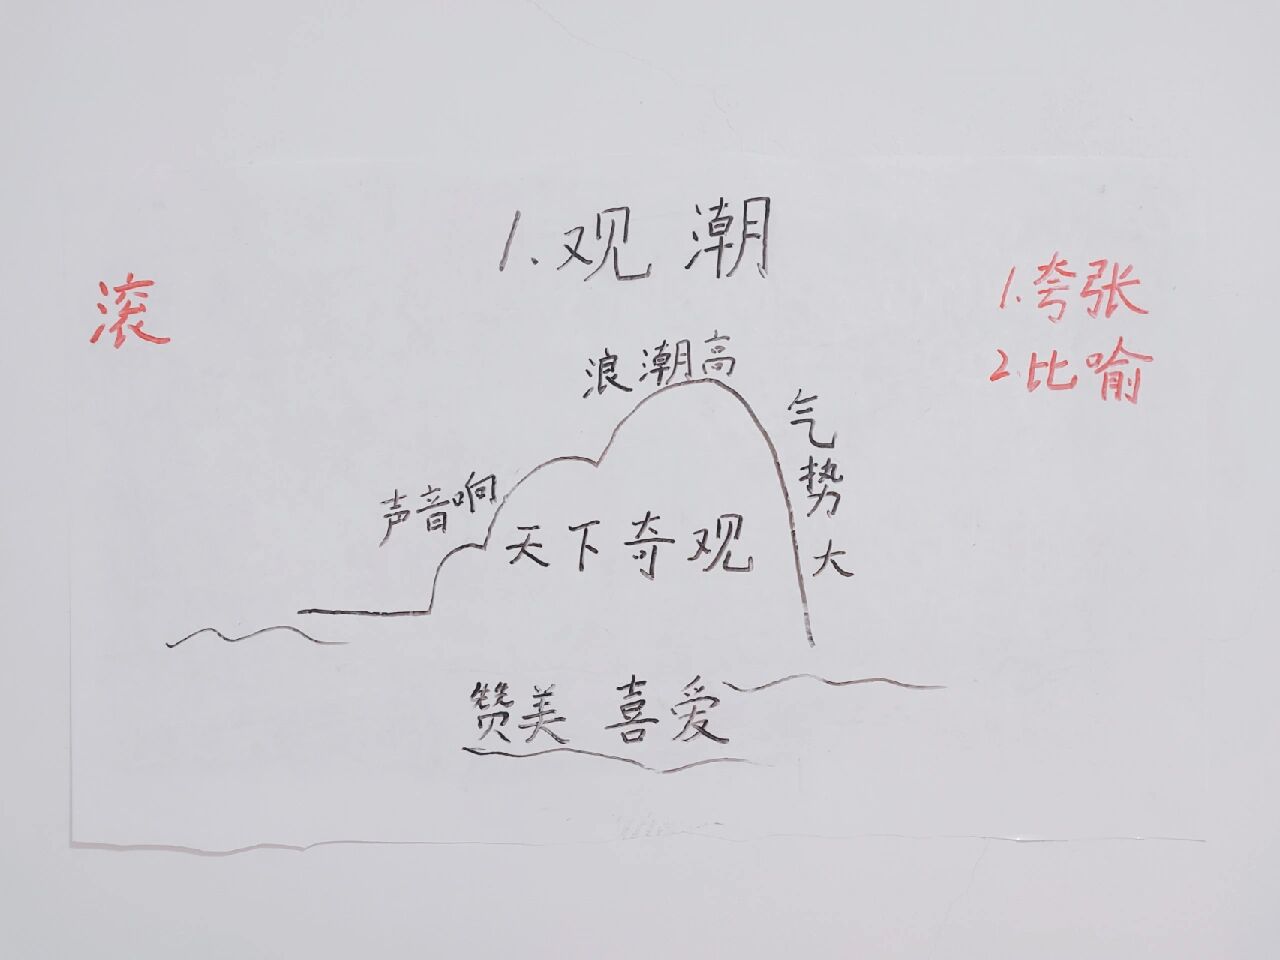 1.观潮
滚
1.夸张
2.比喻
浪潮高
气势大
声音响
天下奇观
赞美 喜爱